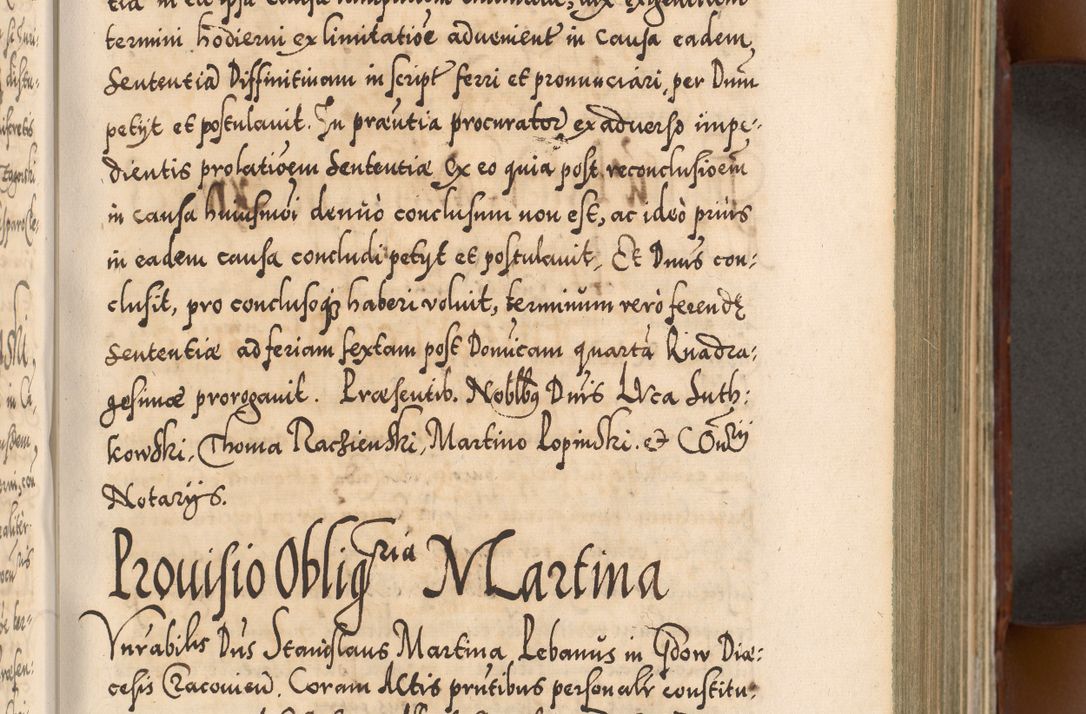 termini hodierni ex limitatiõe aduenient in causa eadem,
Sententiã Diffinitiuam in script ferri et pronunciari, per Dnum
petijt et postulauit. In præntia procurator ex aduerso impe-
dientis prolatiõem Sententiæ Ex eo quia post reconclusiõem
in causa huiusmõi denuò conclusum non est, ac ideò prius
in eadem causa concludi petijt et postulauit, Et Dnus con:
clusit, pro conclusoq3 haberi voluit, terminum verò ferendę
Sententiæ ad feriam sextam post Donicam quartã Quadra:
gesimæ prorogauit. Præsentib. Nobllbg Dnis LVca Suth:
kowski, Thoma Raczienski, Martino Lopinski. et Consry
Notarijs.
Prouisio Obligria Martina
Vnrabilis Dns Stanislaus Martina Plebanus in Gdow Diæ:
cesis Cracovien. Coram Actis pruntibus personalr constitu: